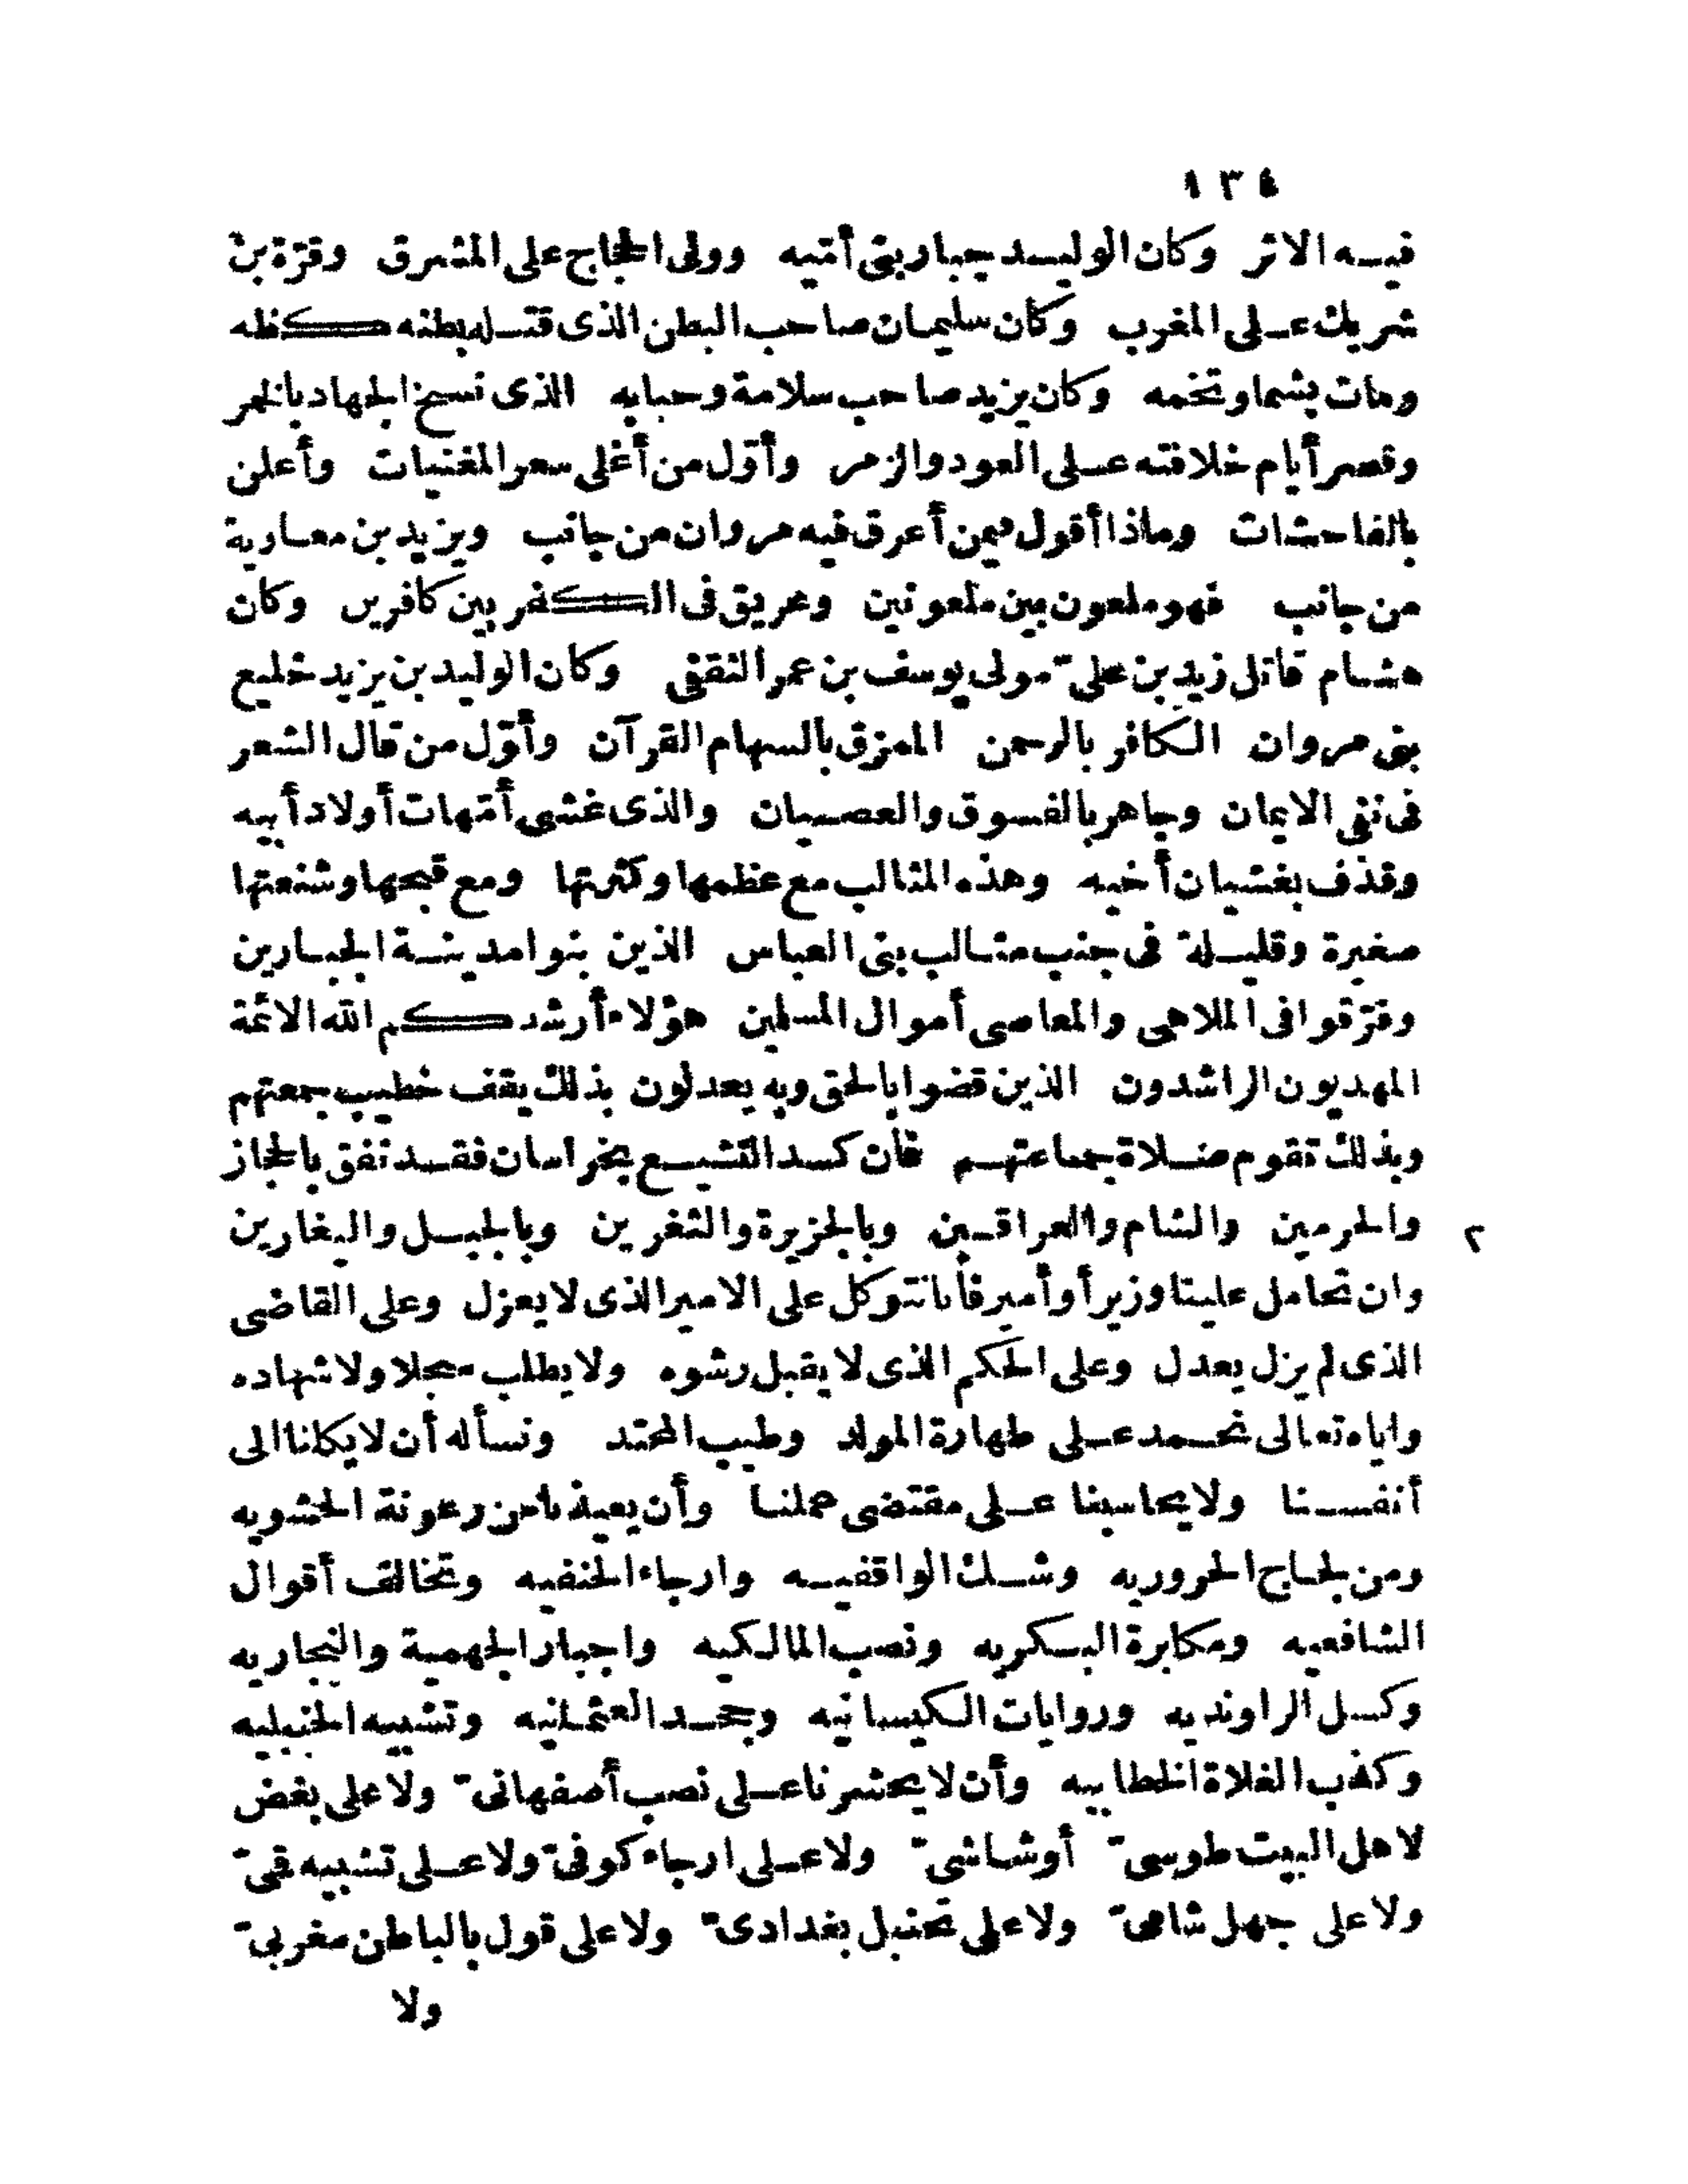 ١٣٤
فيه الاثر وكان الوليد جبار بنى أميه وولى الحجاج على المشرق وقرّة بن
شريك على المغرب وكان سليمان صاحب البطن الذى قتله بطنه كظه
ومات بشما وتخمه وكان يزيد صاحب سلامة وحبابه الذى نسخ الجهاد بالخمر
وقصر أيام خلافته على العود والزمر وأوّل من أغلى سعر المغنيات وأعلن
بالفاحشات وماذا أقول فيمن أعرق فيه مروان من جانب ويزيد بن معاوية
من جانب فهو ملعون بين ملعونين وعريق فى الكفر بين كافرين وكان
هشام قاتل زيد بن علىّ مولى يوسف بن عمر الثقفى وكان الوليد بن يزيد خليع
بنى مروان الكافر بالرحمن الممزق بالسهام القرآن وأوّل من قال الشعر
فى نفى الايمان وجاهر بالفسوق والعصيان والذى غشى أمّهات أولاد أبيه
وقذف بغشيان أخيه وهذه المثالب مع عظمها وكثرتها ومع قبحها وشنعتها
صغيرة وقليلة فى جنب مثالب بنى العباس الذين بنوا مدينة الجبارين
وفرّقوا فى الملاهى والمعاصى أموال المسلمين هؤلاء أرشدكم الله الائمة
المهديون الراشدون الذين قضوا بالحق وبه يعدلون بذلك يقف خطيب جمعتهم
وبذلك تقوم صلاة جماعتهم فأن كسد التشيع بخراسان فقد نفق بالحجاز
والحرمين والشام والعراقين وبالجزيرة والثغرين وبالجبل والبغارين ٢
وان تحامل علينا وزير أو أمير فأنا نتوكل على الامير الذى لا يعزل وعلى القاضى
الذى لم يزل يعدل وعلى الحكم الذى لا يقبل رشوه ولا يطلب سجلا ولا شهاده
واياه تعالى نحمد على طهارة المولد وطيب المحتد ونسأله أن لا يكلنا الى
أنفسنا ولا يحاسبنا على مقتضى عملنا وأن يعيذنا من رعونة الحشويه
ومن لجاج الحروريه وشك الواقفيه وارجاء الحنفيه وتخالف أقوال
الشافعيه ومكابرة البكريه ونصب المالكيه واجبار الجهمية والنجاريه
وكسل الراونديه وروايات الكيسانيه وجحد العثمانيه وتشبيه الحنبليه
وكذب الغلاة الخطابيه وأن لا يحشرنا على نصب أصفهانىّ ولا على بغض
لاهل البيت طوسىّ أو شاشىّ ولا على ارجاء كوفىّ ولا على تشبيه قمىّ
ولا على جهل شامىّ ولا على تحنبل بغدادىّ ولا على قول بالباطن مغربىّ
ولا